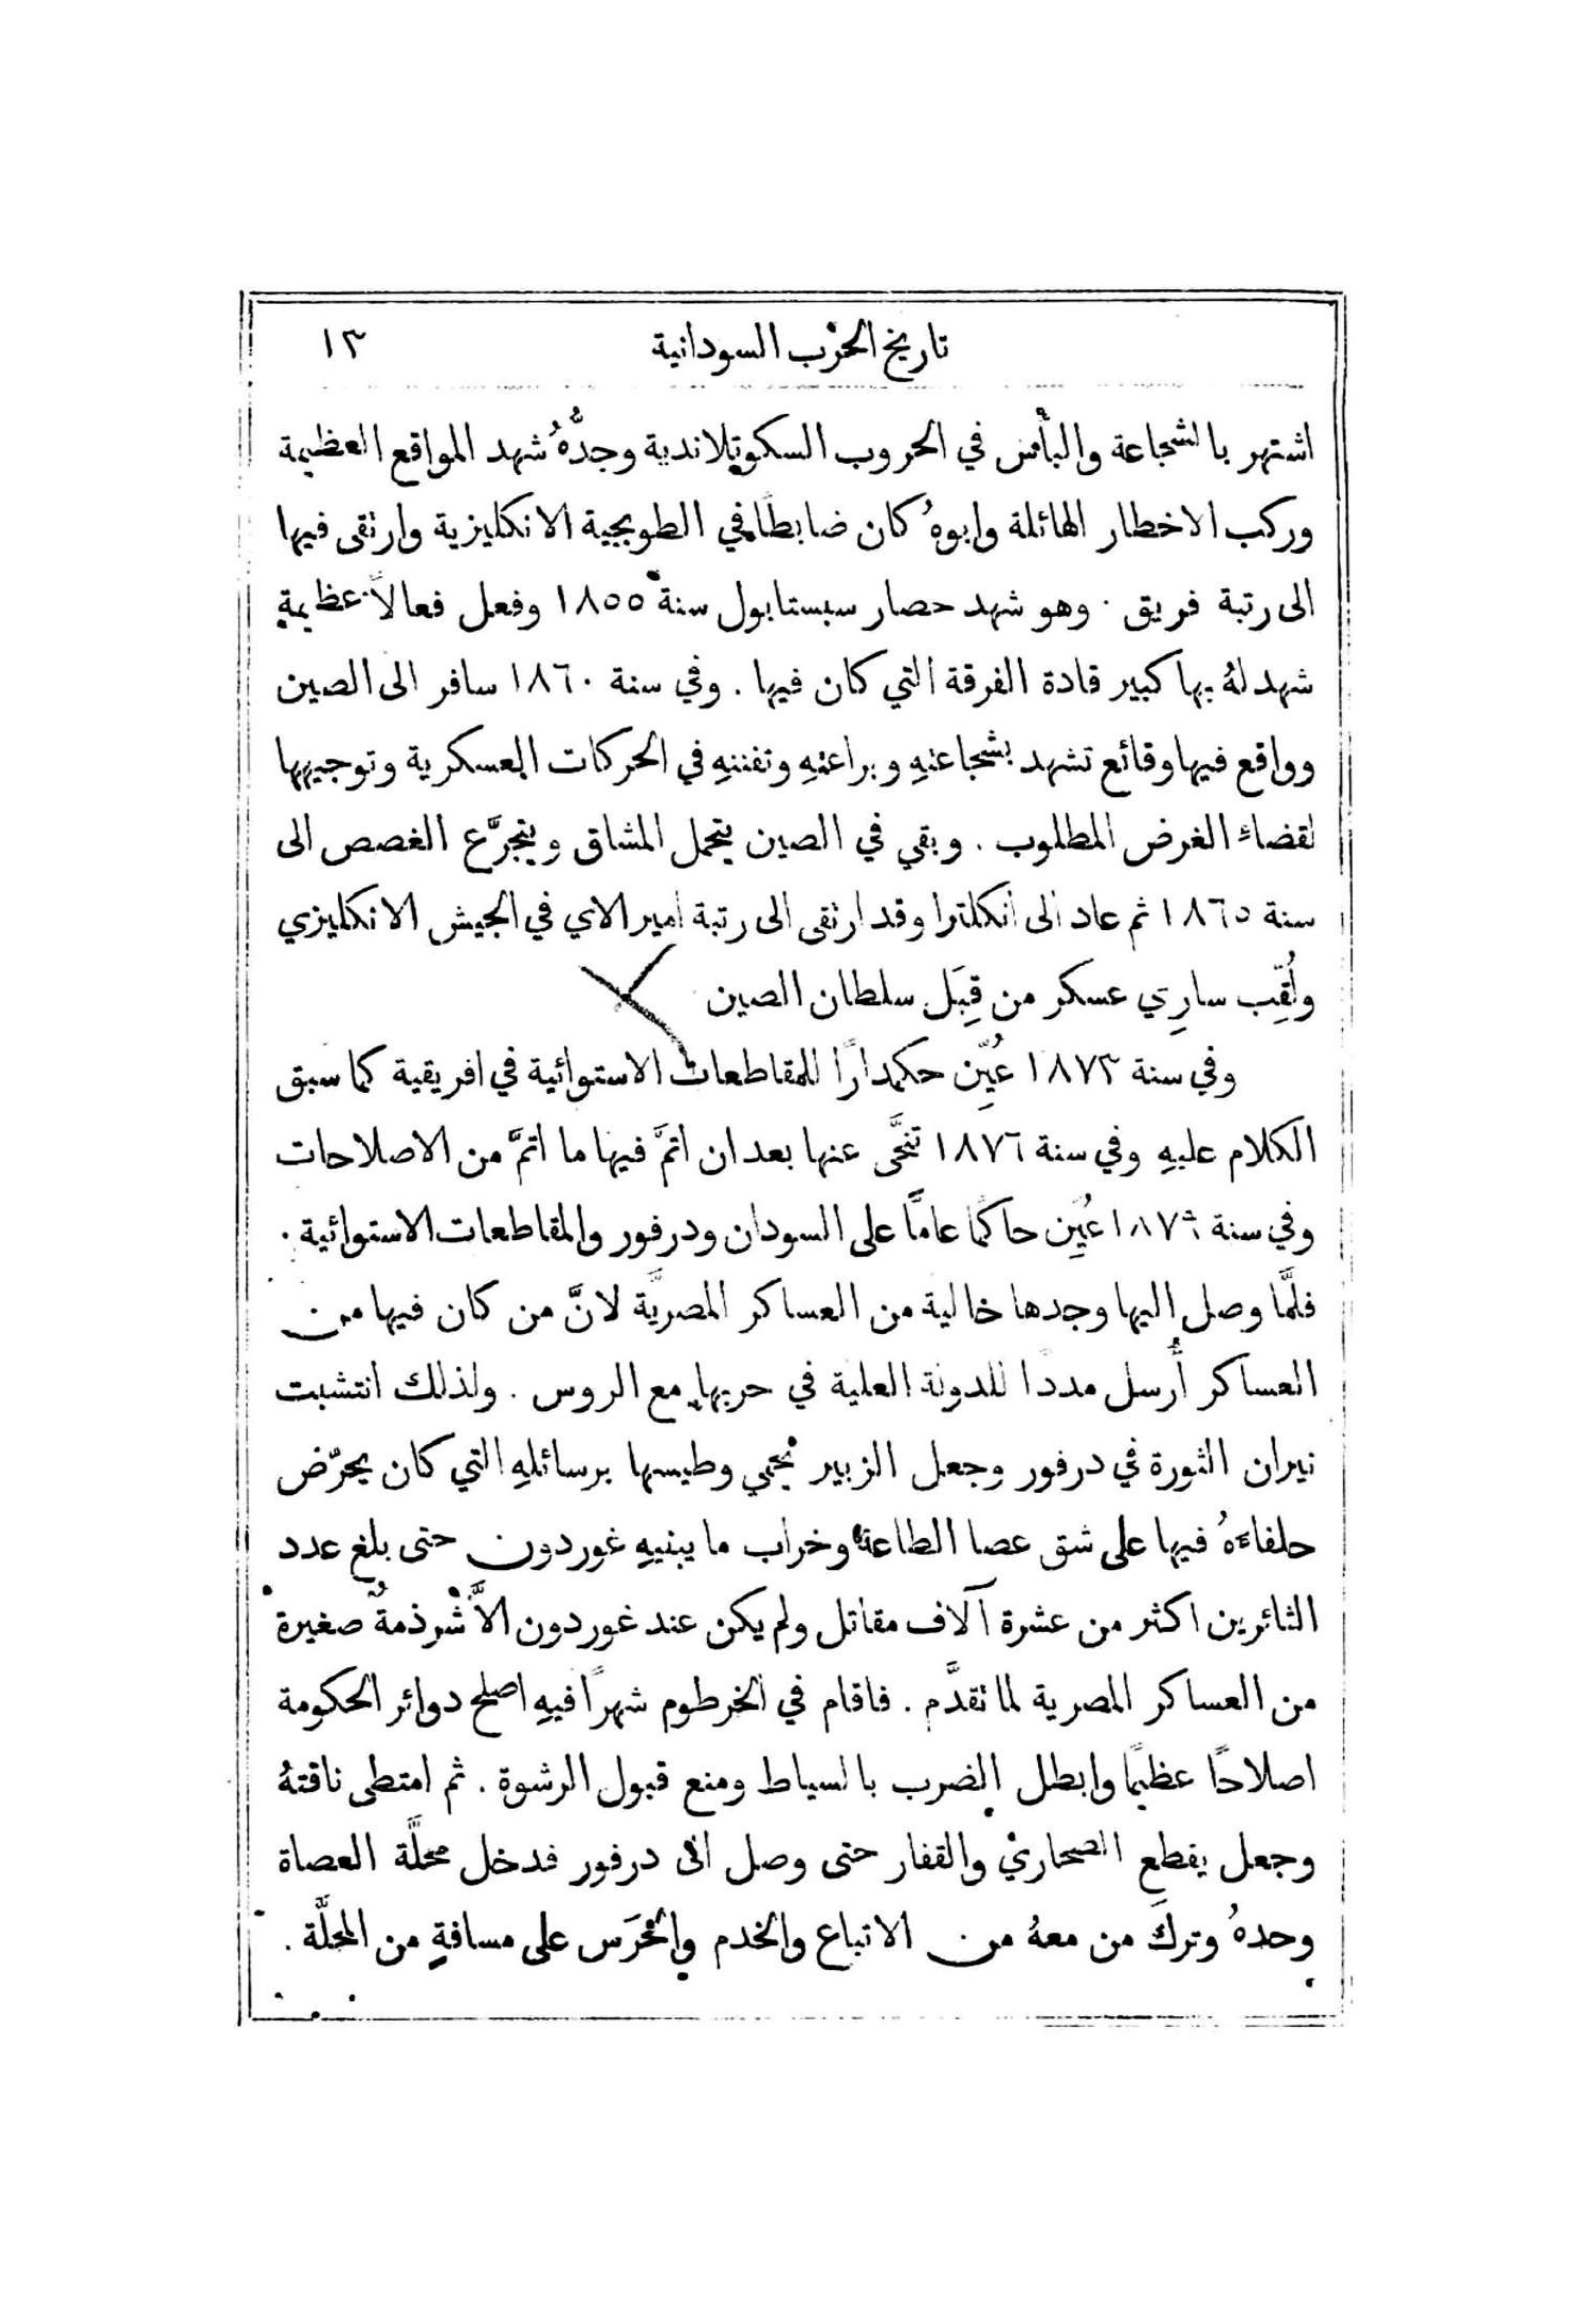 تاريخ الحرب السودانية ١٣
اشتهر بالشجاعة والبأس في الحروب السكوتلاندية وجدُّهُ شهد المواقع العظيمة
وركب الاخطار الهائلة وابوهُ كان ضابطًا في الطوبجية الانكليزية وارتقى فيها
الى رتبة فريق . وهو شهد حصار سبستابول سنة ١٨٥٥ وفعل فعالاً عظيمة
شهد لهُ بها كبير قادة الفرقة التي كان فيها . وفي سنة ١٨٦٠ سافر الى الصين
وواقع فيها وقائع تشهد بشجاعتهِ وبراعتهِ وتفننهِ في الحركات العسكرية وتوجيهها
لقضاء الغرض المطلوب . وبقي في الصين يتحمل المشاق ويتجرَّع الغصص الى
سنة ١٨٦٥ ثم عاد الى انكلترا وقد ارتقى الى رتبة امير الاي في الجيش الانكليزي
ولُقِّب سارِي عسكر من قِبَل سلطان الصين
وفي سنة ١٨٧٣ عُيِّن حكمدارًا للمقاطعات الاستوائية في افريقية كما سبق
الكلام عليهِ وفي سنة ١٨٧٦ تنحَّى عنها بعد ان اتمَّ فيها ما اتمَّ من الاصلاحات
وفي سنة ١٨٧٩ عُيِّن حاكمًا عامًّا على السودان ودرفور والمقاطعات الاستوائية .
فلمَّا وصل اليها وجدها خالية من العساكر المصريَّة لانَّ من كان فيها من
العساكر أُرسل مددًا للدولة العلية في حربها مع الروس . ولذلك انتشبت
نيران الثورة في درفور وجعل الزبير يحمي وطيسها برسائلهِ التي كان يحرّض
حلفاءَهُ فيها على شق عصا الطاعة وخراب ما يبنيهِ غوردون حتى بلغ عدد
الثائرين اكثر من عشرة آلاف مقاتل ولم يكن عند غوردون الاَّ شرذمةٌ صغيرة
من العساكر المصرية لما تقدَّم . فاقام في الخرطوم شهرًا فيهِ اصلح دوائر الحكومة
اصلاحًا عظيمًا وابطل الضرب بالسياط ومنع قبول الرشوة . ثم امتطى ناقتهُ
وجعل يقطع الصحاري والقفار حتى وصل الى درفور فدخل محلَّة العصاة
وحدهُ وتركَ من معهُ من الاتباع والخدم والحَرَس على مسافةٍ من المحلَّة .